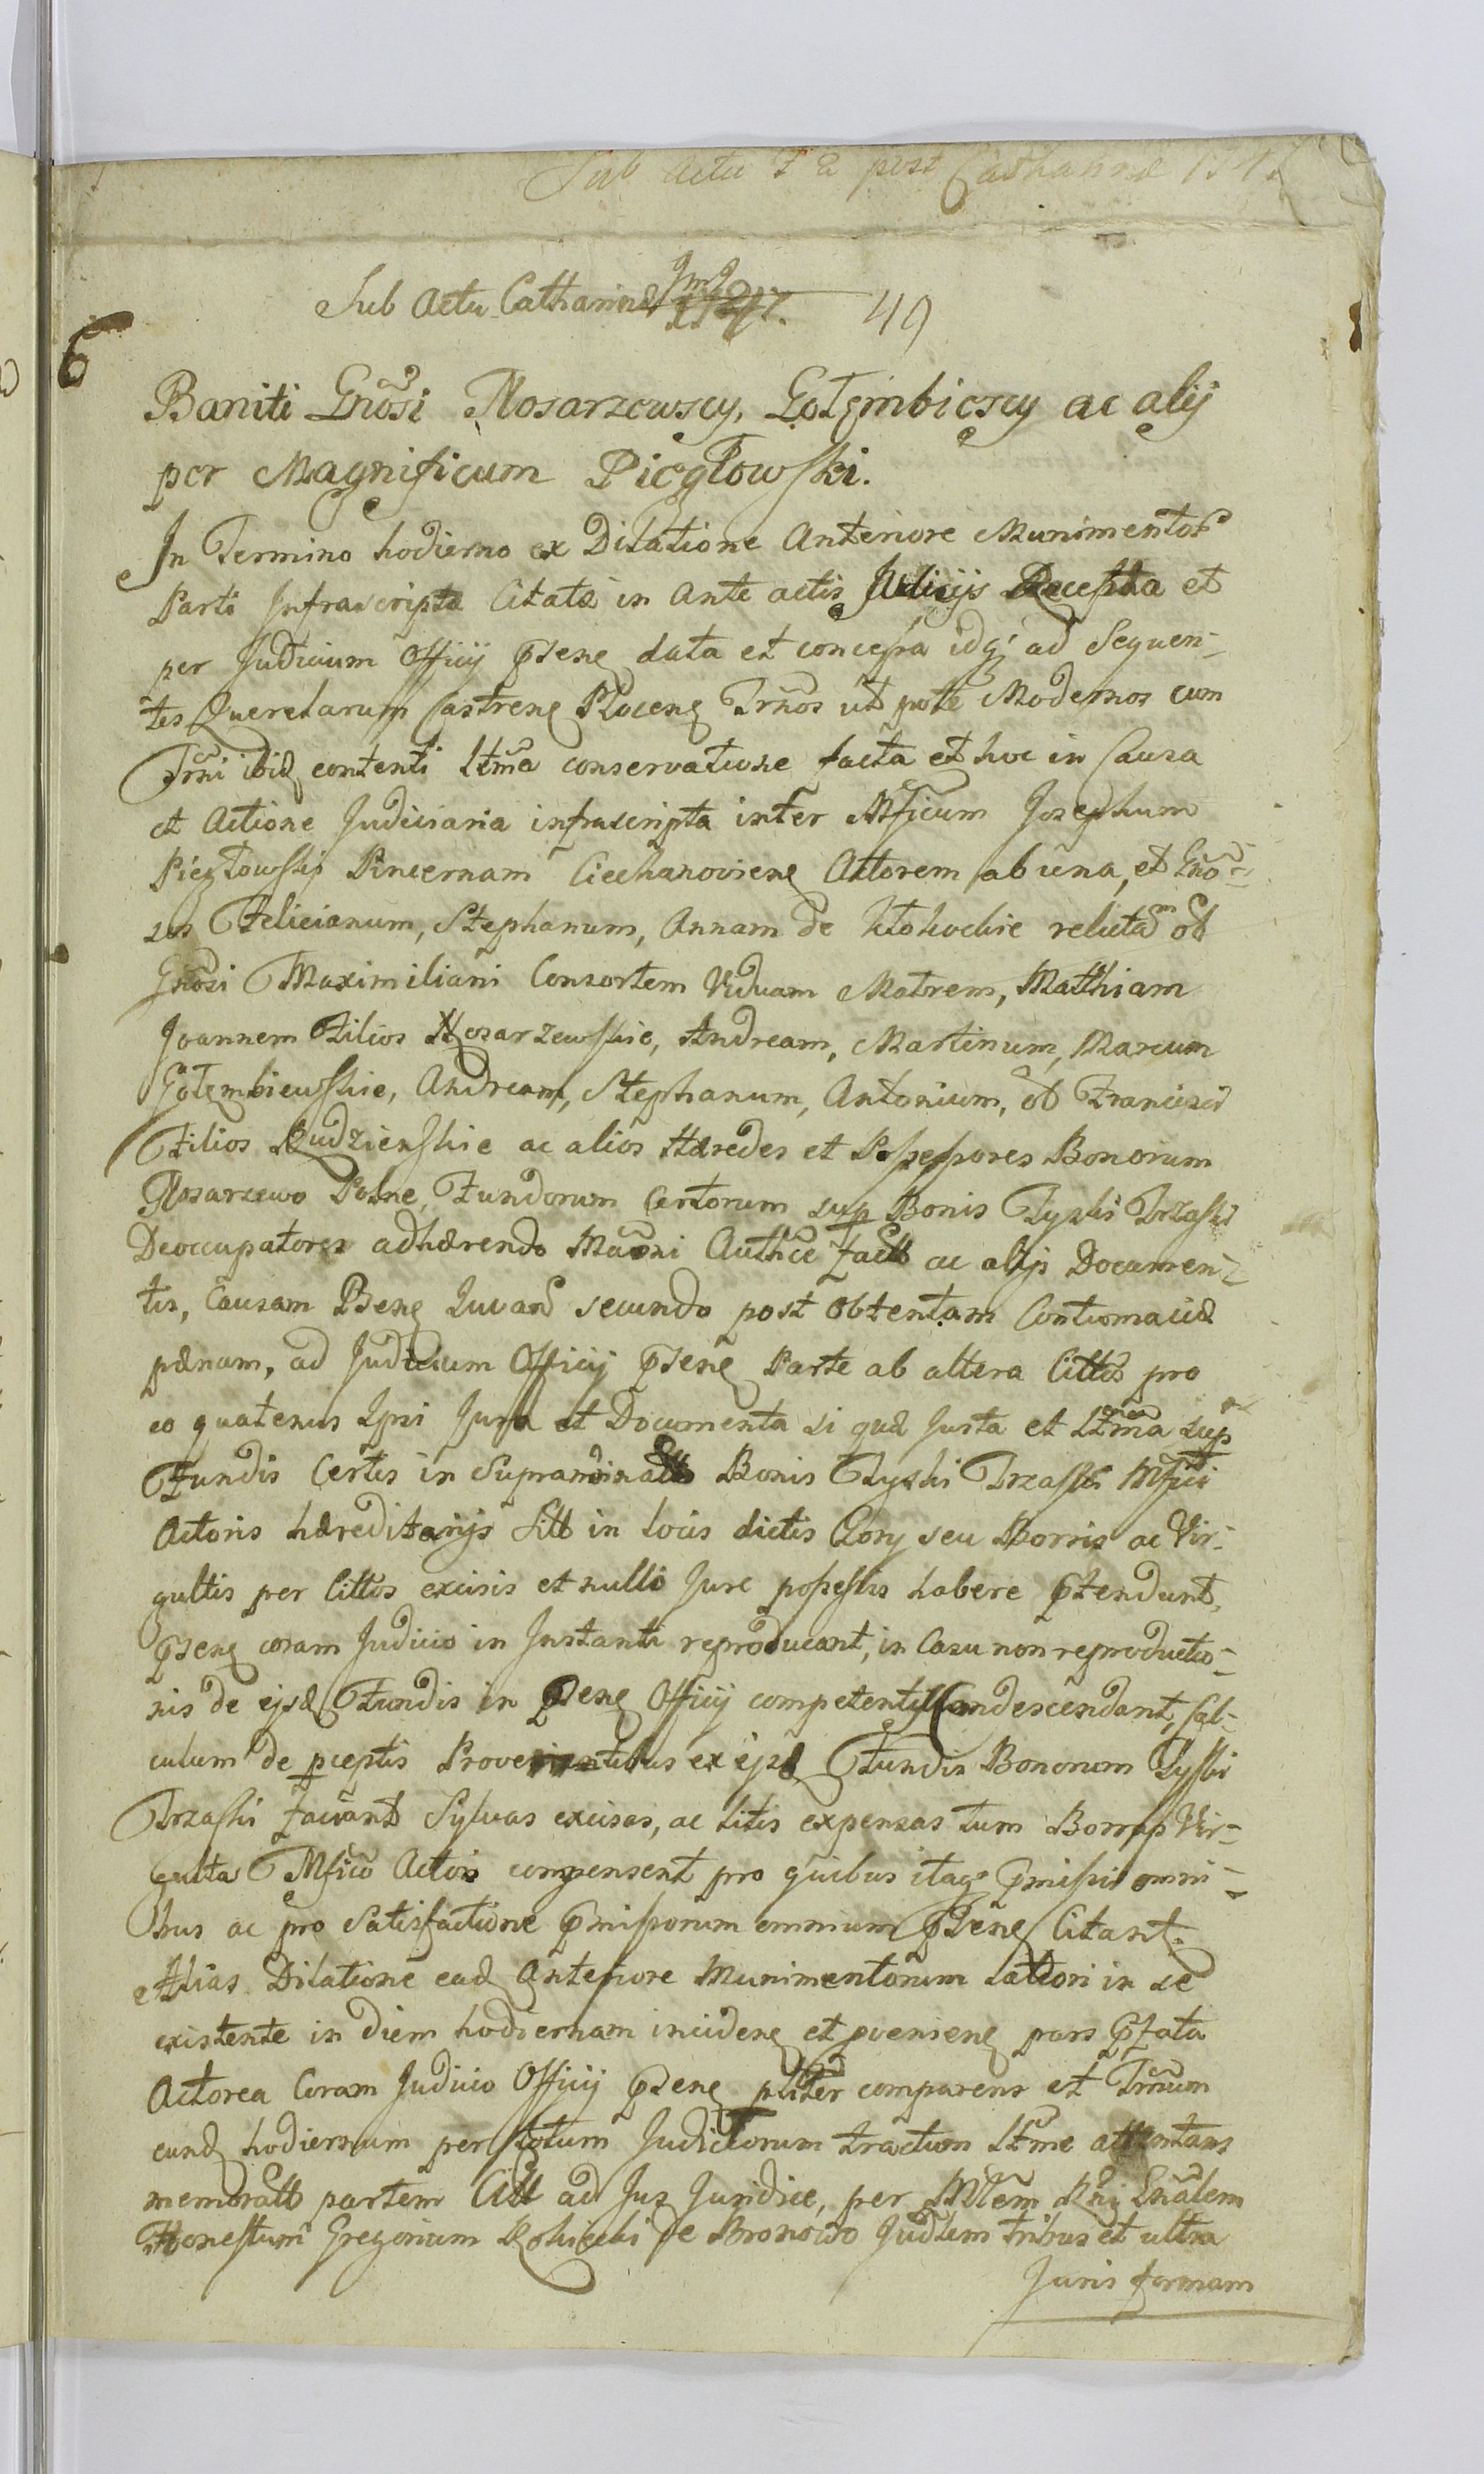 Sub Actu F 2 post Catharinæ
Sub Actu Catharinæ 49
6
Baniti Gnosi Nosarzewscy, Gołembiescy ac alij
per Magnificum Piegłowski.
In Termino hodierno ex Dilatione Anteriore Munimentor
Parti Infrascriptæ Citatæ in Ante actis Judicijs Recepta et
per Judicium Officij pseng data et concessa idq; ad Sequen-
tes Querelarum Castreng Ploceng Trnos ut pote Modernos cum
Trni ibid contenti Ltma conservatione facta et hoc in Causa
et Actione Judiciaria infrascripta inter Mficum Josephum
Piegłowski Pincernam Ciechanovieng Actorem ab una, et Gno-
sos Felicianum, Stephanum, Annam de relictã ol
Gnosi Maximiliani Consortem Viduam Matrem, Matthiam
Joannem Filios Nosarzewskie, Andream, Martinum, Marcum
Gołembiewskie, Andream, Stephanum, Antonium, ol Francisci
Filios Rudzienskie ac alios Hæredes et Possessores Bonorum
Nosarzewo Polne, Fundorum Certorum sup Bonis Tyszki Trzaski
Deoccupatores adhærendo Maoni Authce factt ac alijs Documen-
tis, Causam Bene Juvan secundo post obtentam Contumaciæ
pænam, ad Judicium Officij pseng Parte ab altera Cittos pro
eo quatenus Ipsi Jura et Documenta si quæ Justa et Ltma sup
Fundis Certis in Bonis Tyszki Trzaski Mfici
Actoris hæreditarijs sitt in locis dictis seu Borris ac Vir-
gultis per Cittos excisis et nullo Jure possessis habere ptendunt,
pseng coram Judicio in Instanti reproducant, in Casu non reproductio-
nis de ijsd Fundis in pseng Officij competenti Condescendant, Cal-
culum de pceptis Provenientibus ex ijsd Fundis Bonorum Tyszki
Trzaski faciant Sylvas excisas, ac litis expensas tum Borras Vir-
gulta Mfico Actori compensent pro quibus itaq pmissis omni-
bus ac pro Satisfactione pmissorum omnium pseng Citant.
Alias Dilatione ead Anteriore Munimentorum Lattori in se
existente in diem hodiernam incideng et pvenieng pars pfata
Actorea Coram Judicio Officij pseng pliter comparens et Trnum
eund hodiernum per totum Judiciorum tractum Ltme attentans
memoratt partem Citt ad Jus Juridice, per Mlem Rni Gnalem
Honestum Gregorium de Bronowo Judlem tribus et ultra
Juris formam